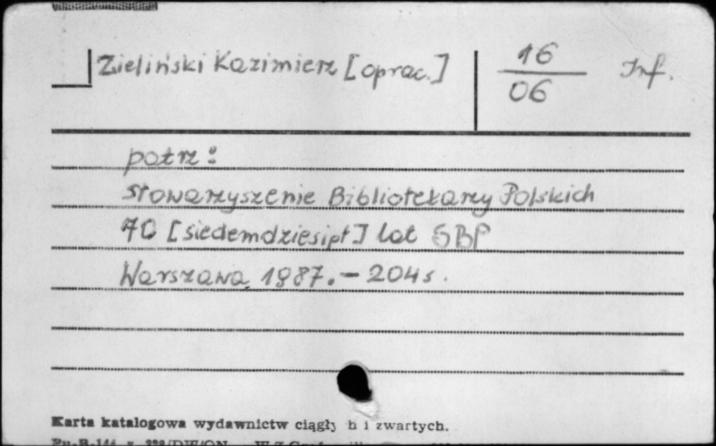 Zieliński Kazimierz [oprac.] 16 Inf.
06
patrz:
Stowarzyszenie Bibliotekarzy Polskich
70 [siedemdziesiąt] lat SBP
Warszawa, 1987. - 204 s.
Karta katalogowa wydawnictw ciągły h i zwartych.